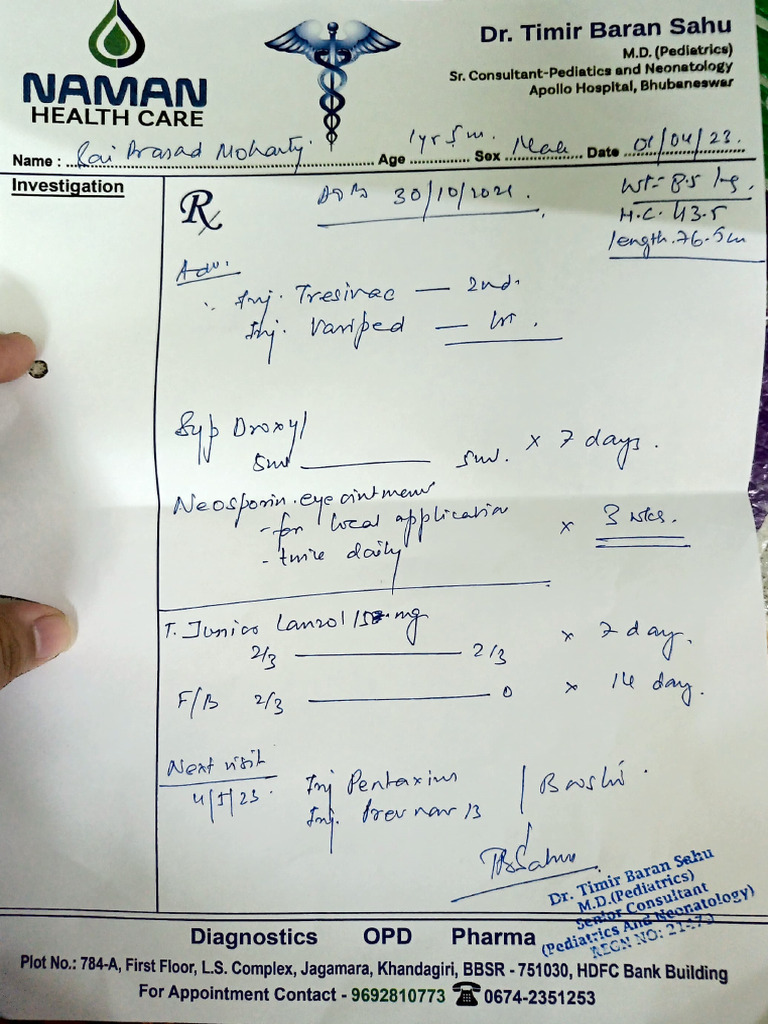 NAMAN
HEALTH CARE
Dr. Timir Baran Sahu
M.D. (Pediatrics)
Sr. Consultant-Pediatics and Neonatology
Apollo Hospital, Bhubaneswar
Name : Sai Prasad Mohanty Age 1yr 5m. Sex Male Date 01/04/23.
Investigation
Rx
DOB 30/10/2021.
Wt- 8.5 kg
H.C. 43.5
length. 76.5cm
Adv.
Inj. Tresivac — 2nd.
Inj. Variped — 1st.
Syp Droxyl
5ml — 5ml. x 7 days.
Neosporin. eye ointment
- for local application
- twice daily x 3 wks.
T. Junior Lanzol 15 mg
2/3 — 2/3 x 7 day.
F/B 2/3 — 0 x 14 day.
Next visit
4/5/23
Inj Pentaxim
Inj. Prevnar 13 | Booster.
TBSahu
Dr. Timir Baran Sahu
M.D.(Pediatrics)
Senior Consultant
(Pediatrics And Neonatology)
REGN NO:
Diagnostics OPD Pharma
Plot No.: 784-A, First Floor, L.S. Complex, Jagamara, Khandagiri, BBSR - 751030, HDFC Bank Building
For Appointment Contact - 9692810773 ☎ 0674-2351253